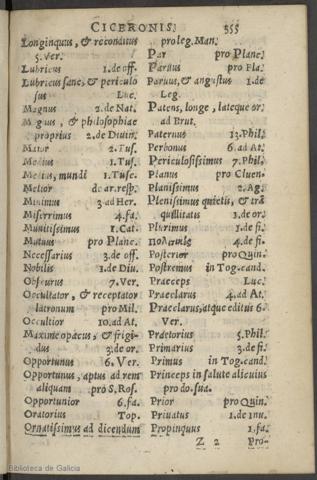 CICERONIS. 355
Longinquus, & reconditus
5. Ver.
Lubricus 1. de off.
Lubricus sane, & periculo
sus Luc.
Magnus 2. de Nat.
Magnus, & philosophiae
proprius 2. de Diuin.
Maior 2. Tus.
Medius 1. Tus.
Medius, mundi 1. Tusc.
Melior de ar. resp.
Minimus 3. ad Her.
Miserrimus 4. fa.
Munitissimus 1. Cat.
Mutuus pro Planc.
Necessarius 3. de off.
Nobilis 1. de Diu.
Obscurus 7. Ver.
Occultator, & receptator
latronum pro Mil.
Occultior 10. ad At.
Maxime opacus, & frigi-
dus 3. de or.
Opportunus 6. Ver.
Opportunus, aptus ad rem
aliquam pro S. Ros.
Opportunior 6. fa.
Oratorius Top.
Ornatissimus ad dicendum
pro leg. Man.
Par pro Planc.
Paruus pro Pla.
Paruus, & angustus 1. de
Leg.
Patens, longe, lateque or.
ad Brut.
Paternus 13. Phil.
Perbonus 6. ad At.
Periculosissimus 7. Phil.
Planus pro Cluen.
Planissimus 2. Ag.
Plenissimus quietis, & trā
quillitatis 1. de or.
Plurimus 1. de fi.
4. de fi.
Posterior pro Quin.
Postremus in Tog. cand.
Praeceps Luc.
Praeclarus 4. ad At.
Praeclarus, atque editus 6.
Ver.
Praetorius 5. Phil.
Primarius 3. de fi.
Primus in Tog. cand.
Princeps in salute alicuius
pro do. sua.
Prior pro Quin.
Priuatus 1. de inu.
Propinquus 1. fa.
Z 2 Pro-
Biblioteca de Galicia